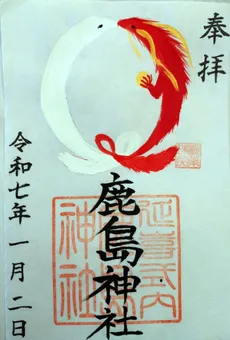 奉拝
鹿島神社
延喜式内
神社
令和七年一月二日